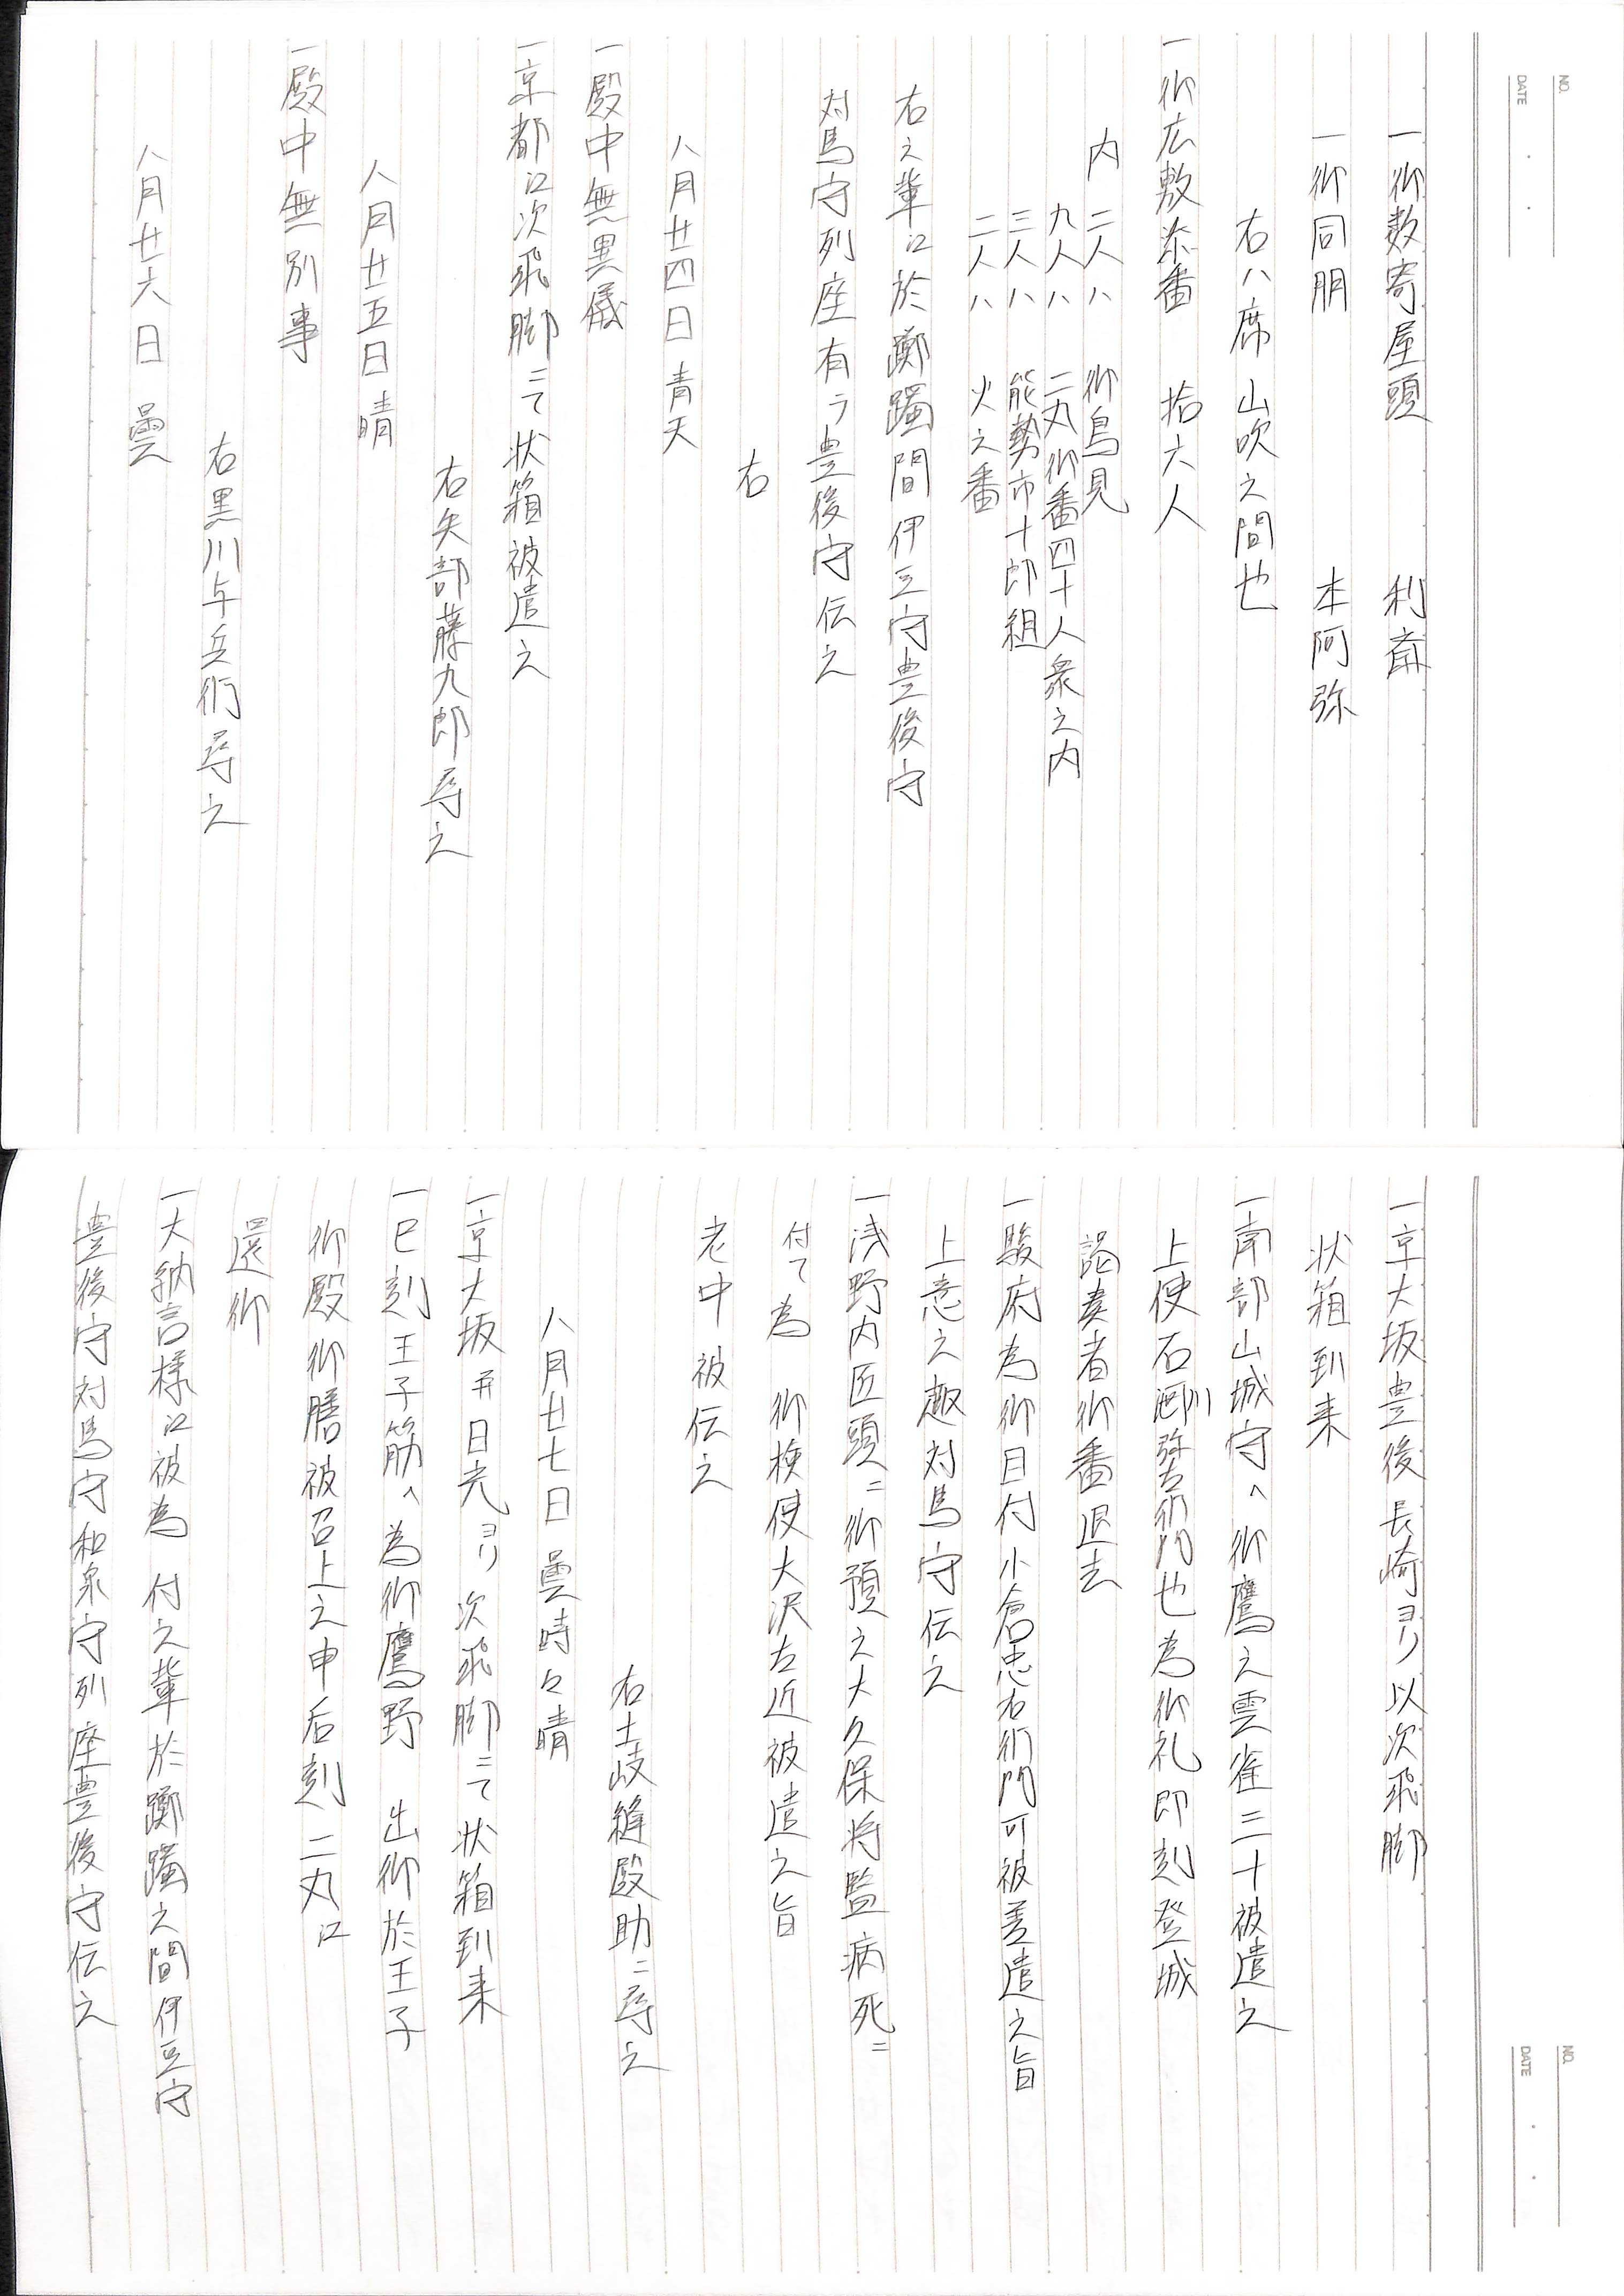 NO.
DATE
一御数寄屋頭 利斎
一御同朋 本阿弥
右ハ席 山吹之間也
一御広敷添番 拾六人
内 二人ハ 御鳥見
九人ハ 二丸御番四十人衆之内
三人ハ 能勢市十郎組
二人ハ 火之番
右之輩江於躑躅間伊豆守豊後守
対馬守列座有テ豊後守伝之
右
八月廿四日 青天
一殿中無異儀
一京都江次飛脚ニて状箱被遣之
右矢部藤九郎尋之
八月廿五日 晴
一殿中無別事
右黒川与兵衛尋之
八月廿六日 曇
NO.
DATE
一京大坂豊後長崎ヨリ以次飛脚
状箱到来
一南部山城守へ御鷹之雲雀三十被遣之
上使石川弥左衛門也為御礼即刻登城
謁奏者御番退去
一駿府為御目付小倉忠右衛門可被差遣之旨
上意之趣対馬守伝之
一浅野内匠頭ニ御預之大久保将監病死ニ
付て為 御検使大沢左近被遣之旨
老中被伝之
右土岐縫殿助ニ尋之
八月廿七日 曇時々晴
一京大坂并日光ヨリ次飛脚ニて状箱到来
一巳刻王子筋へ為御鷹野 出御於王子
御殿御膳被召上之申后刻二丸江
還御
一大納言様江被為 付之輩於躑躅之間伊豆守
豊後守対馬守和泉守列座豊後守伝之